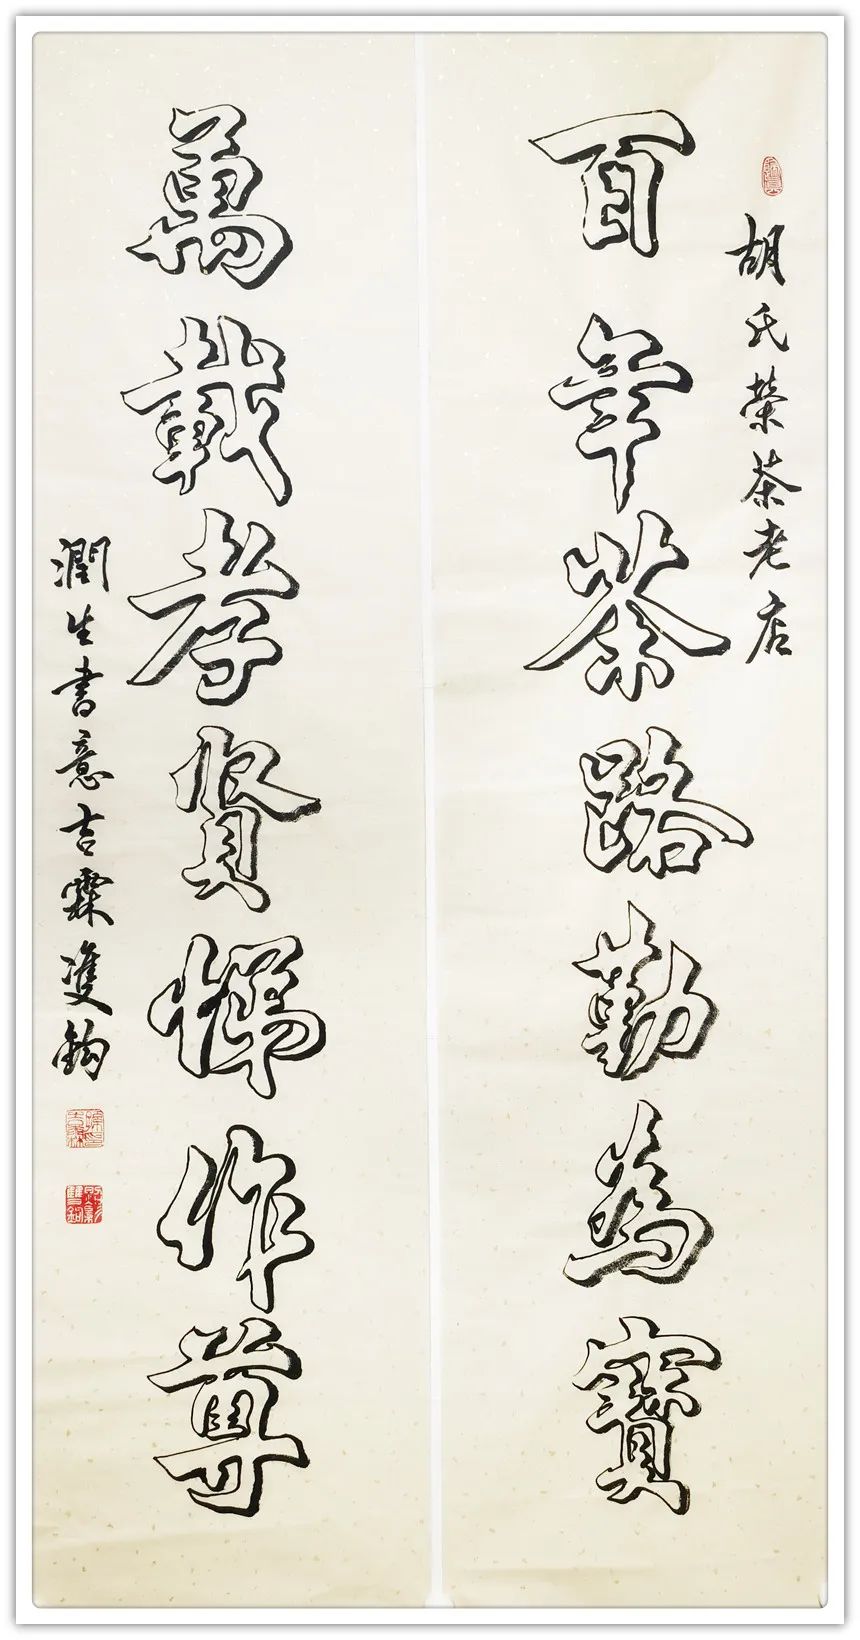 胡氏榮茶老店
百年茶路勤為寶
萬載孝賢悌作尊
潤生書意吉霖雙鈎